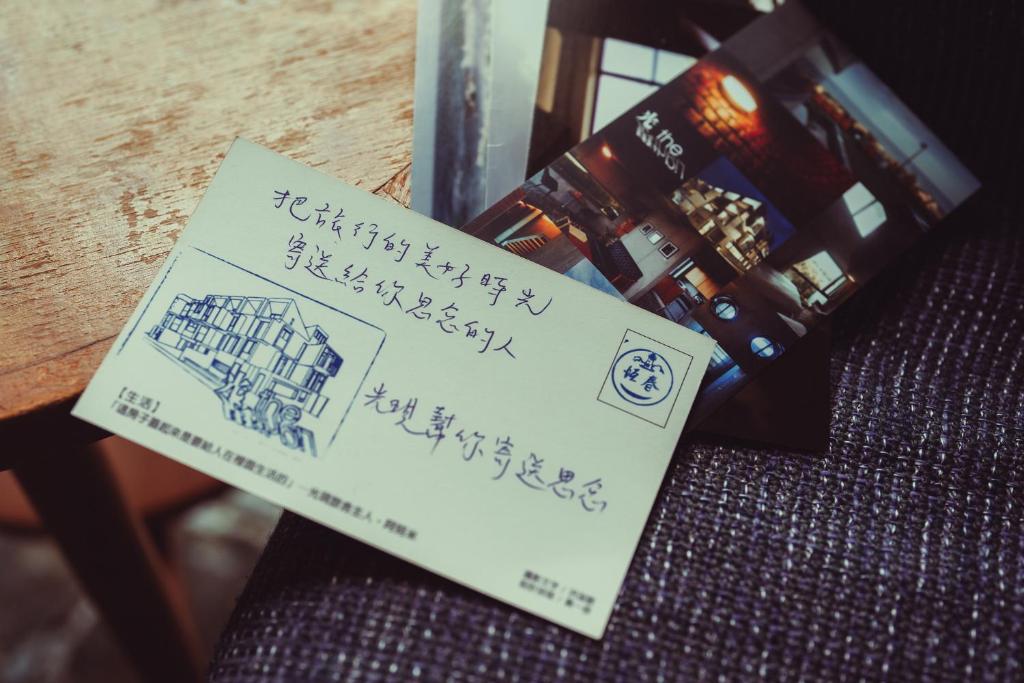 把旅行的美好時光
寄送給你思念的人
光現幫你寄送思念
【生活】
「這房子蓋起來是要給人在裡面生活的」
恆春
光 the